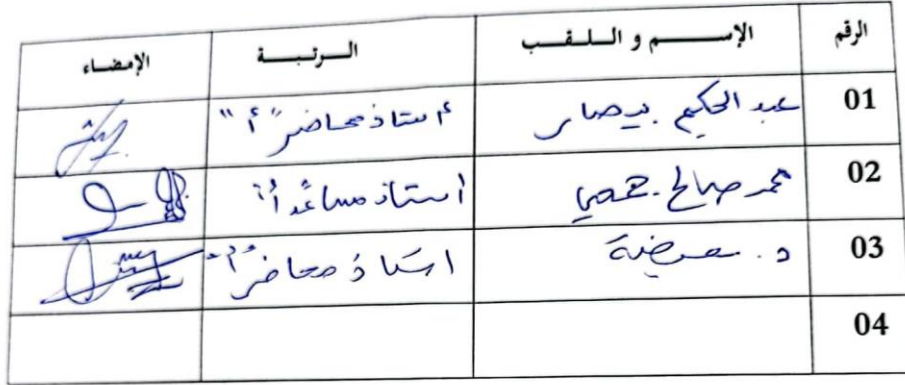 الرقم الإســـم و اللـقـب الـرتـبـة الإمضـاء
01 عبد الحكيم بيصار أستاذ محاضر "أ"
02 محمد صالح أستاذ مساعد "أ"
03 د. أستاذ محاضر "أ"
04